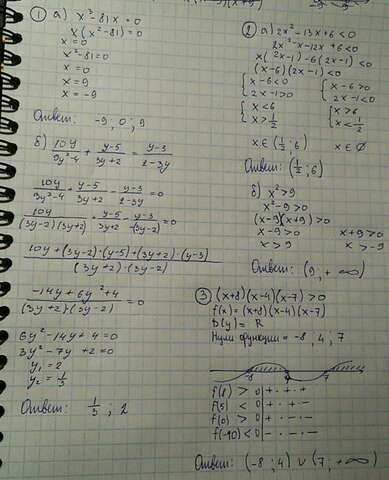 ① а) x³-81x=0
x(x²-81)=0
x=0
x²-81=0
x=0
x=9
x=-9
Ответ: -9; 0; 9
б) 10y/(9y²-4) + (y-5)/(3y+2) = (y-3)/(2-3y)
10y/(9y²-4) + (y-5)/(3y+2) - (y-3)/(2-3y) = 0
10y/((3y-2)(3y+2)) + (y-5)/(3y+2) - (y-3)/-(3y-2) = 0
(10y+(3y-2)·(y-5)+(3y+2)·(y-3))/((3y+2)·(3y-2))
(-14y+6y²+4)/((3y+2)(3y-2)) = 0
6y²-14y+4=0
3y²-7y+2=0
y₁=2
y₂=1/3
Ответ: 1/3; 2
② а) 2x²-13x+6<0
2x²-x-12x+6<0
x(2x-1)-6(2x-1)<0
(x-6)(2x-1)<0
{x-6<0 {x-6>0
{2x-1>0 {2x-1<0
{x<6 {x>6
{x>1/2 {x<1/2
x∈(1/2;6) x∈Ø
Ответ: (1/2;6)
б) x²>9
x²-9>0
(x-9)(x+9)>0
x-9>0 x+9>0
x>9 x>-9
Ответ: (9,+∞)
③ (x+8)(x-4)(x-7)>0
f(x)=(x+8)(x-4)(x-7)
D(y)=R
Нули функции = -8; 4; 7
-8 4 7
f(8) > 0 + · + · +
f(5) < 0 + · + · -
f(0) > 0 + · - · -
f(-10) < 0 - · - · -
Ответ: (-8;4) ∪ (7;+∞)